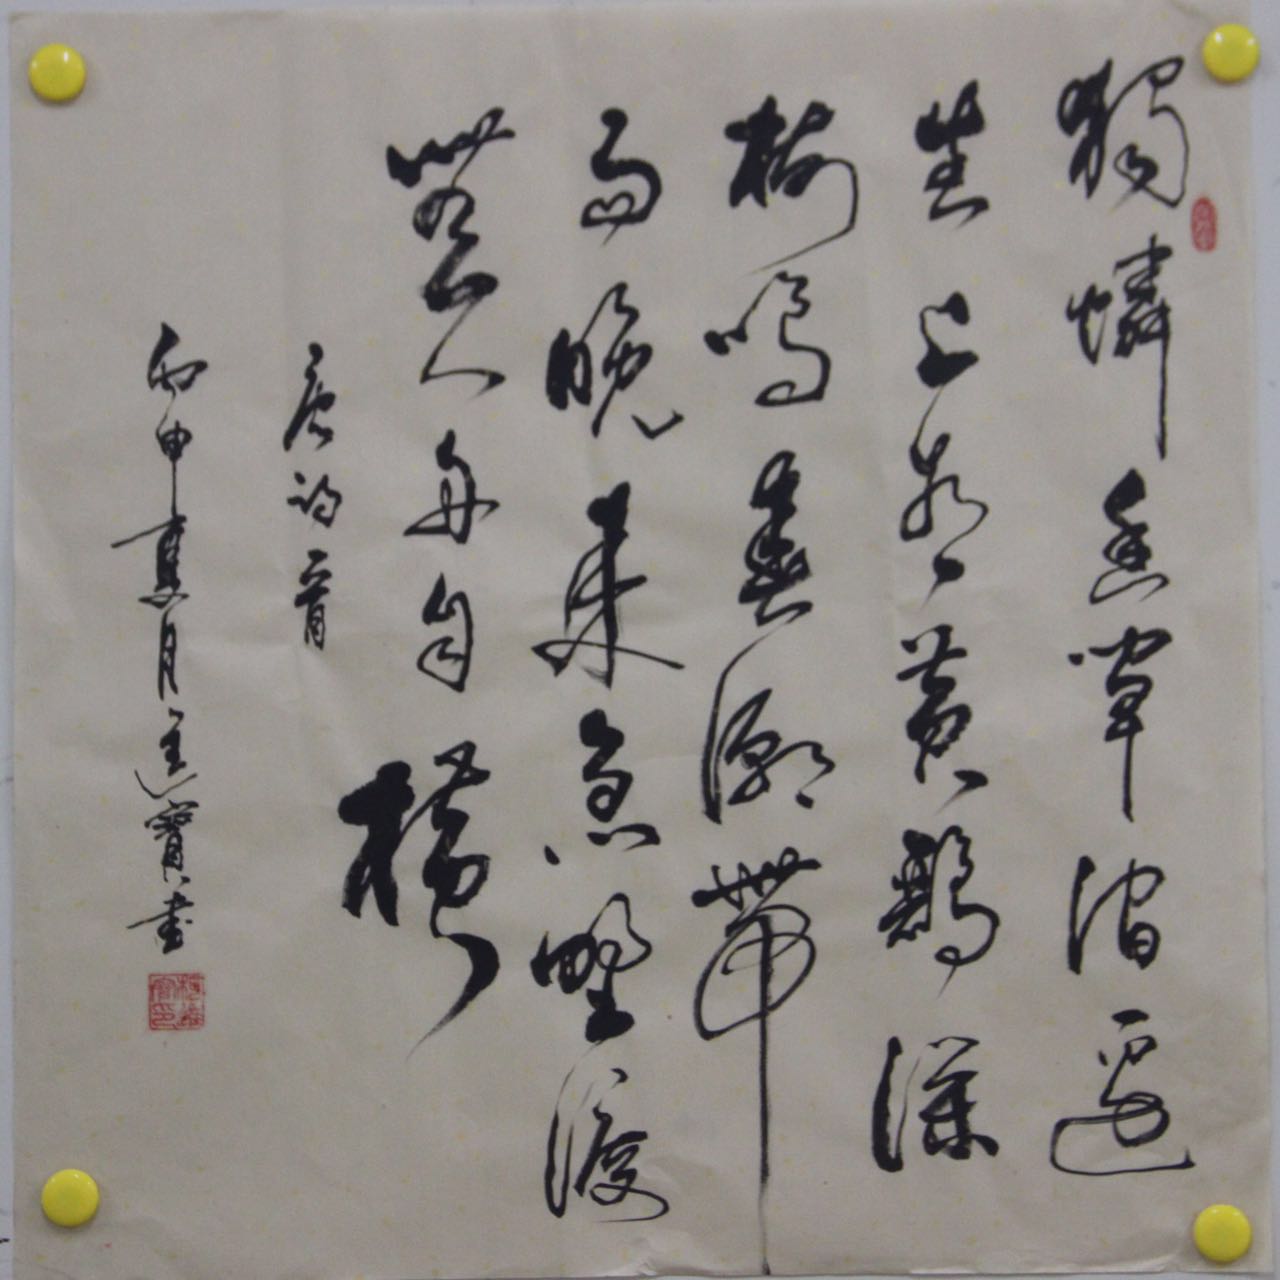 獨憐幽草澗邊
生上有黃鸝深
樹鳴春潮帶
雨晚來急野渡
無人舟自橫
唐詩一首
丙申夏月寶書